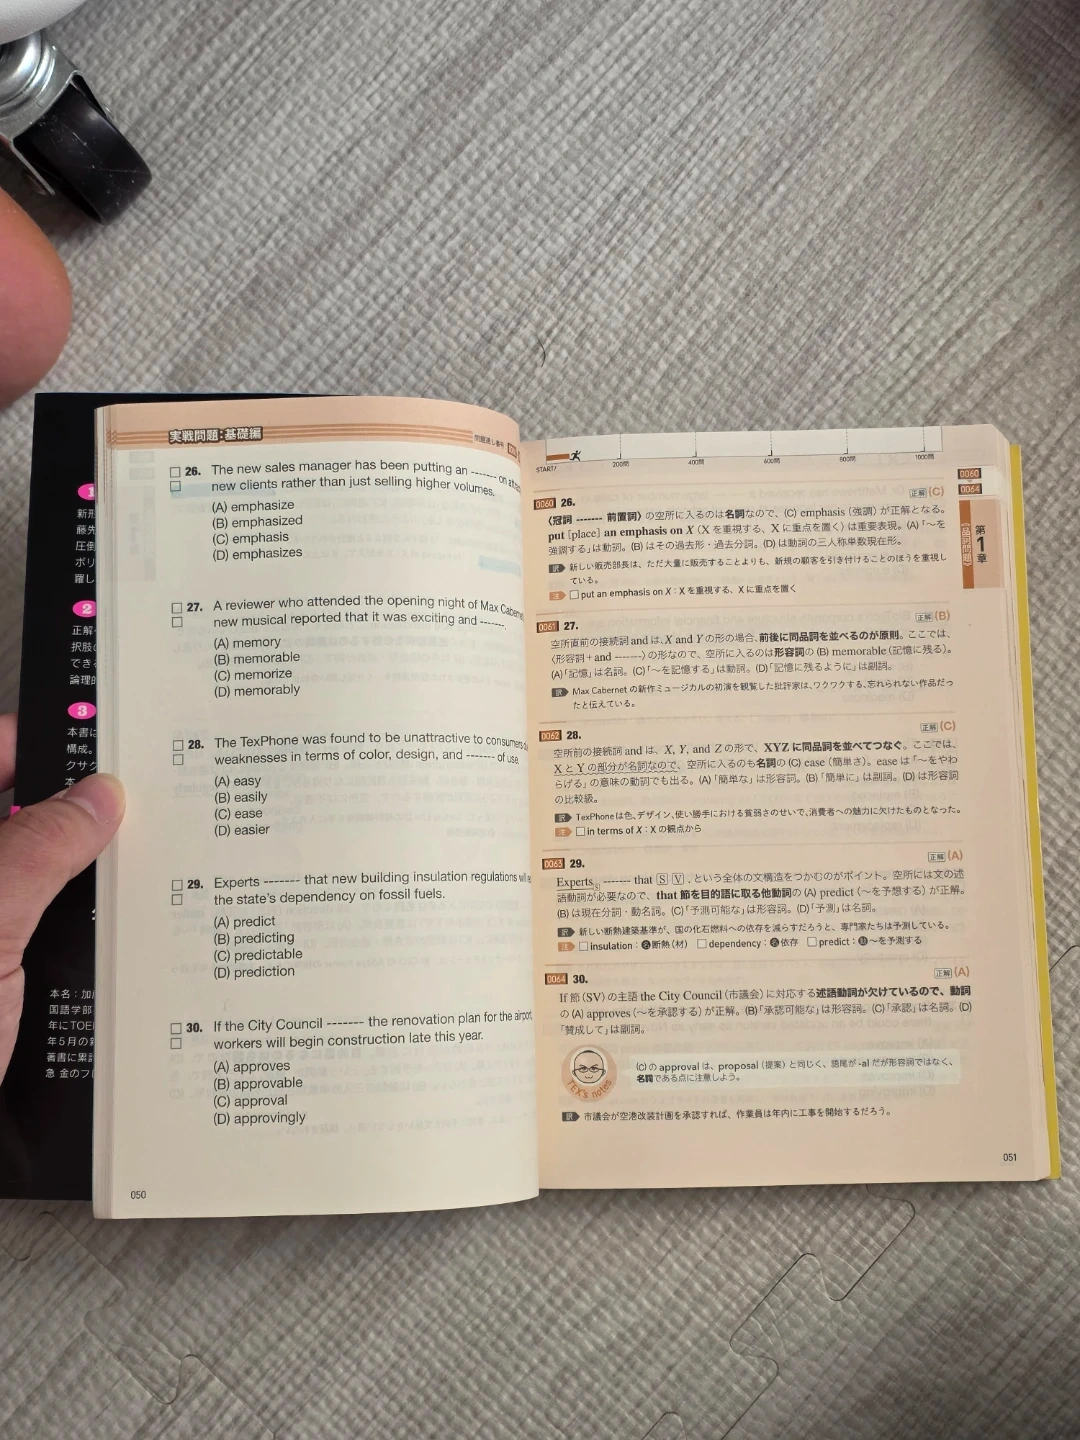 実戦問題:基礎編
問題通し番号
26. The new sales manager has been putting an ------- on
new clients rather than just selling higher volumes.
(A) emphasize
(B) emphasized
(C) emphasis
(D) emphasizes
27. A reviewer who attended the opening night of Max
new musical reported that it was exciting and -------.
(A) memory
(B) memorable
(C) memorize
(D) memorably
28. The TexPhone was found to be unattractive to consumers
weaknesses in terms of color, design, and ------- of use.
(A) easy
(B) easily
(C) ease
(D) easier
29. Experts ------- that new building insulation regulations
the state's dependency on fossil fuels.
(A) predict
(B) predicting
(C) predictable
(D) prediction
30. If the City Council ------- the renovation plan for the airport,
workers will begin construction late this year.
(A) approves
(B) approvable
(C) approval
(D) approvingly
050
START!
200問
400問
600問
800問
1000問
0060
0064
第1章
品詞問題
0060 26.
正解 (C)
〈冠詞 ------- 前置詞〉の空所に入るのは名詞なので、(C) emphasis (強調) が正解となる。
put [place] an emphasis on X (X を重視する、X に重点を置く) は重要表現。(A)「〜を
強調する」は動詞。(B) はその過去形・過去分詞。(D) は動詞の三人称単数現在形。
訳 新しい販売部長は、ただ大量に販売することよりも、新規の顧客を引き付けることのほうを重視し
ている。
注 □ put an emphasis on X:X を重視する、X に重点を置く
0061 27.
正解 (B)
空所直前の接続詞 and は、X and Y の形の場合、前後に同品詞を並べるのが原則。ここでは、
〈形容詞+and -------〉の形なので、空所に入るのは形容詞の (B) memorable (記憶に残る)。
(A)「記憶」は名詞。(C)「〜を記憶する」は動詞。(D)「記憶に残るように」は副詞。
訳 Max Cabernet の新作ミュージカルの初演を観覧した批評家は、ワクワクする、忘れられない作品だっ
たと伝えている。
0062 28.
正解 (C)
空所前の接続詞 and は、X, Y, and Z の形で、XYZ に同品詞を並べてつなぐ。ここでは、
X と Y の部分が名詞なので、空所に入るのも名詞の (C) ease (簡単さ)。ease は「〜をやわ
らげる」の意味の動詞でも出る。(A)「簡単な」は形容詞。(B)「簡単に」は副詞。(D) は形容詞
の比較級。
訳 TexPhone は色、デザイン、使い勝手における貧弱さのせいで、消費者への魅力に欠けたものとなった。
注 □ in terms of X:X の観点から
0063 29.
正解 (A)
Experts S ------- that S V . という全体の文構造をつかむのがポイント。空所には文の述
語動詞が必要なので、that 節を目的語に取る他動詞の (A) predict (〜を予想する) が正解。
(B) は現在分詞・動名詞。(C)「予測可能な」は形容詞。(D)「予測」は名詞。
訳 新しい断熱建築基準が、国の化石燃料への依存を減らすだろうと、専門家たちは予測している。
注 □ insulation:名 断熱(材) □ dependency:名 依存 □ predict:動 〜を予測する
0064 30.
正解 (A)
If 節 (SV) の主語 the City Council (市議会) に対応する述語動詞が欠けているので、動詞
の (A) approves (〜を承認する) が正解。(B)「承認可能な」は形容詞。(C)「承認」は名詞。(D)
「賛成して」は副詞。
TEX's notes
(C) の approval は、proposal (提案) と同じく、語尾が -al だが形容詞ではなく、
名詞である点に注意しよう。
訳 市議会が空港改装計画を承認すれば、作業員は年内に工事を開始するだろう。
051
1
新形
藤先
圧倒
ボリ
羅し
2
正解
択肢
でき
論理的
3
本書は
構成。
クサク
本名:加
国語学部
年にTOEI
年5月の新
著書に累計
急 金のフレ